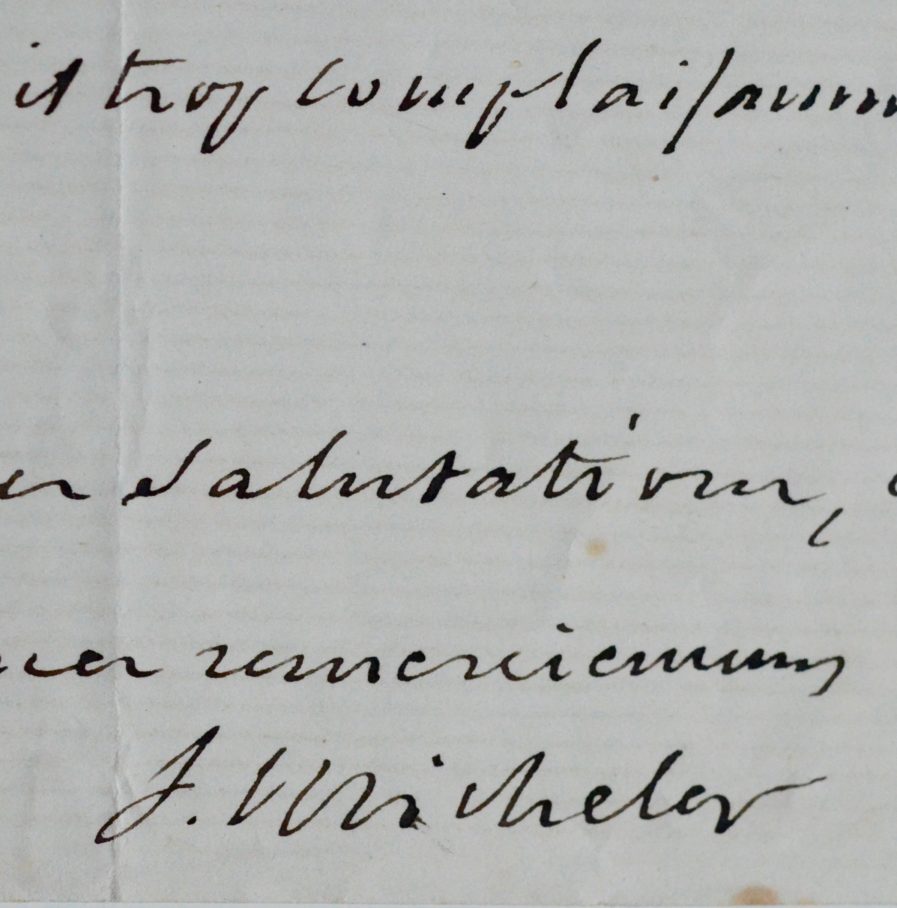 it trop complaisamm
salutations,
remerciemens
J. Michelet